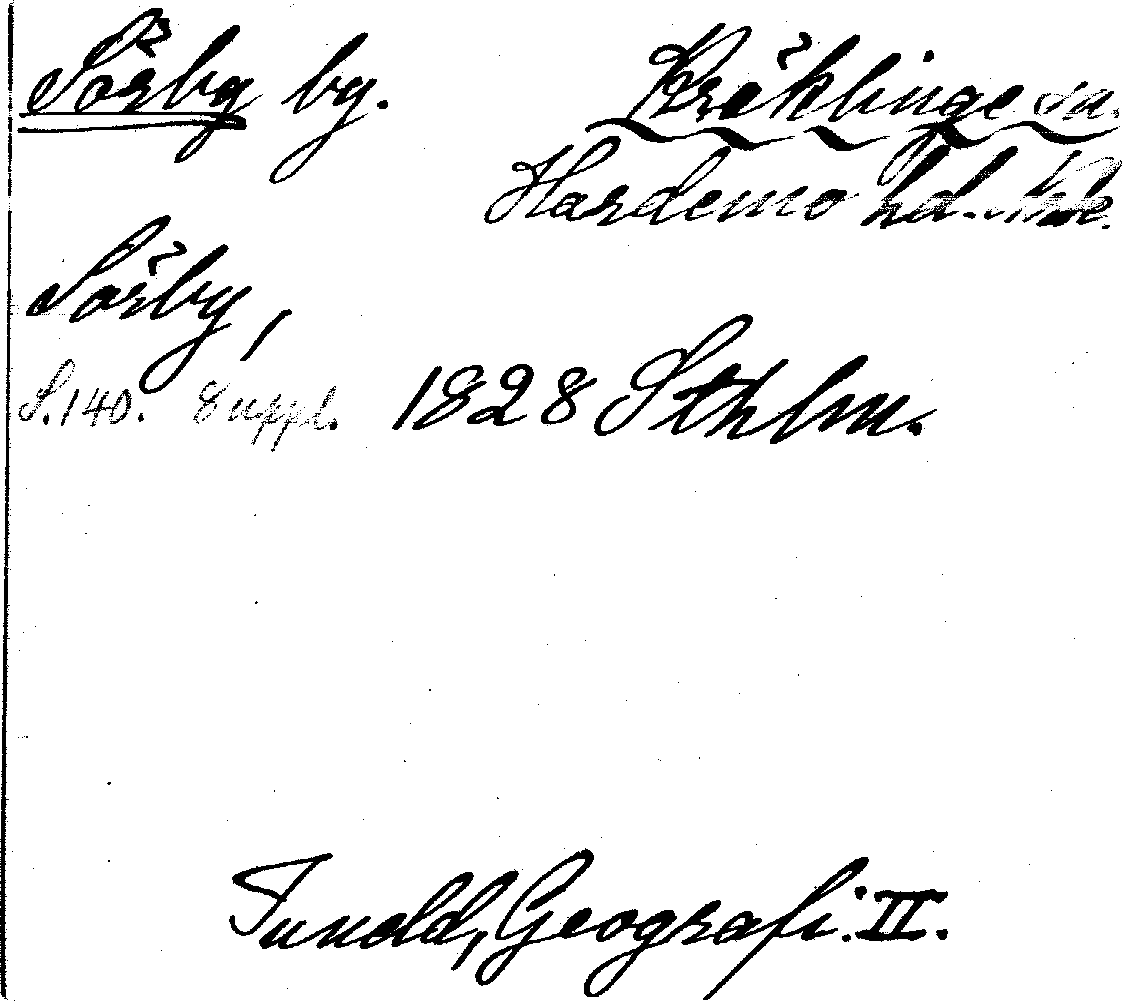 Sörby by. Kräklinge sn.
Hardemo hd. Nke.
Sörby,
S.140. Suppl. 1828 Sthlm.
Tuneld, Geografi. II.